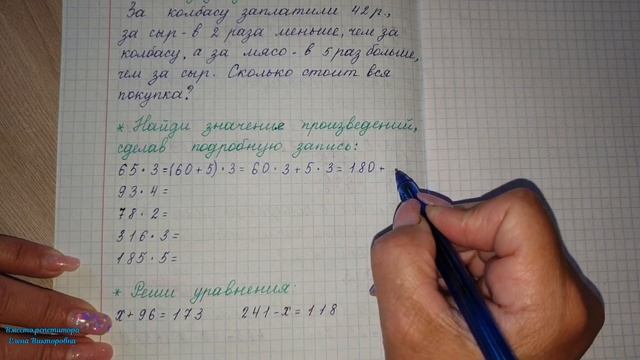 За колбасу заплатили 42 р.,
за сыр - в 2 раза меньше, чем за
колбасу, а за мясо - в 5 раз больше,
чем за сыр. Сколько стоит вся
покупка?
* Найди значения произведений,
сделав подробную запись:
65 · 3 = (60 + 5) · 3 = 60 · 3 + 5 · 3 = 180 +
93 · 4 =
78 · 2 =
316 · 3 =
185 · 5 =
* Реши уравнения:
х + 96 = 173 241 - х = 118
Вместо репетитора
Елена Викторовна